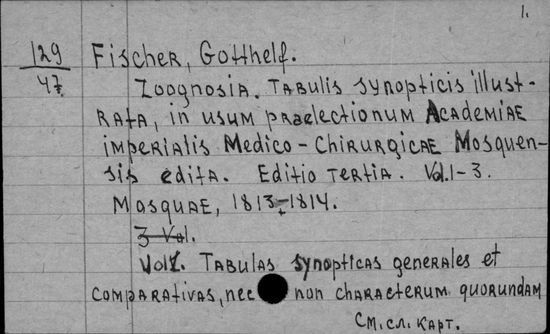 1.
129 Fischer, Gotthelf.
47. Zoognosia. Tabulis synopticis illust-
rata, in usum praelectionum Academiae
imperialis Medico-Chirurgicae Mosquen-
sis edita. Editio tertia. Vol. 1-3.
Mosquae, 1813-1814.
3 Vol.
Vol 1. Tabulas synopticas generales et
comparativas, nec non characterum quorundam
См. сл. карт.